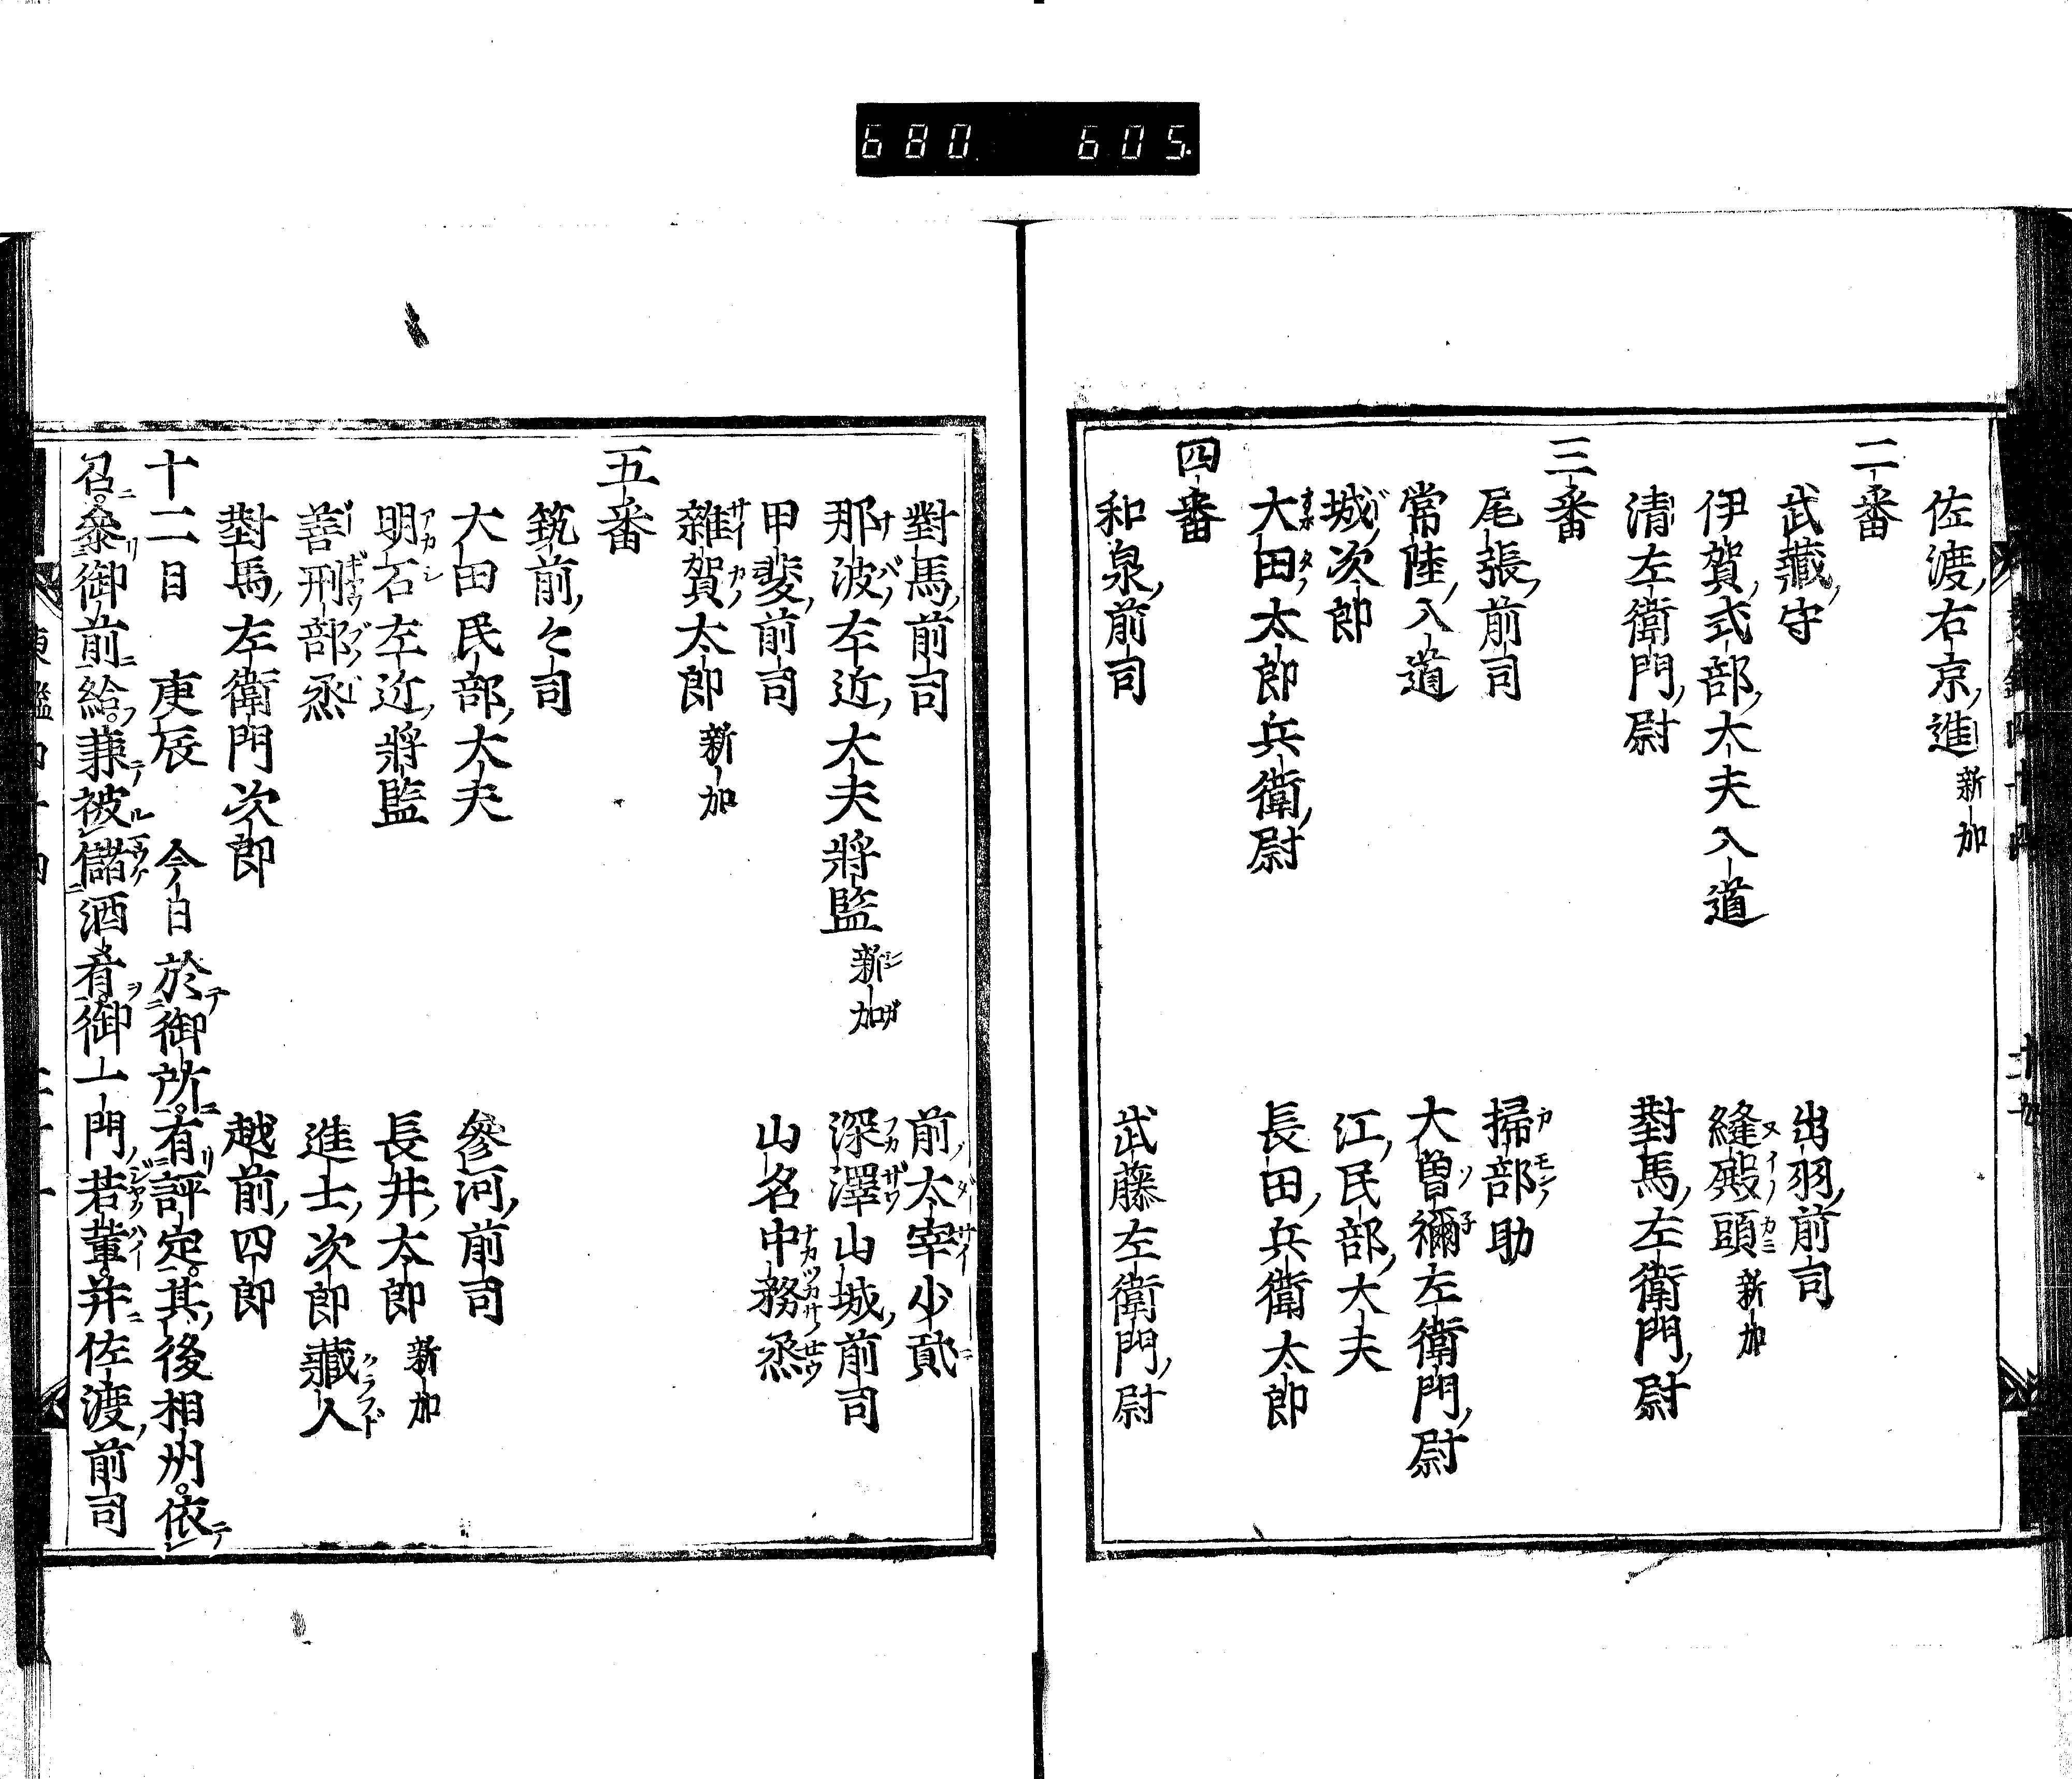 680 605
佐渡右京進 新加
二番
武藏守 出羽前司
伊賀式部大夫入道 縫殿頭 新加
清左衛門尉 對馬左衛門尉
三番
尾張前司 掃部助
常陸入道 大曽禰左衛門尉
城次郎 江民部大夫
大田太郎兵衛尉 長田兵衛太郎
四番
和泉前司 武藤左衛門尉
對馬前司 前太宰少貳
那波左近大夫將監 新加 深澤山城前司
甲斐前司 山名中務烝
雜賀太郎 新加
五番
筑前々司
大田民部大夫 參河前司
明石左近將監 長井太郎 新加
善刑部烝 進士次郎藏人
對馬左衛門次郎 越前四郎
十二日 庚辰 今日於御所有評定其後相州依
召參御前給兼被儲酒肴御一門若輩并佐渡前司